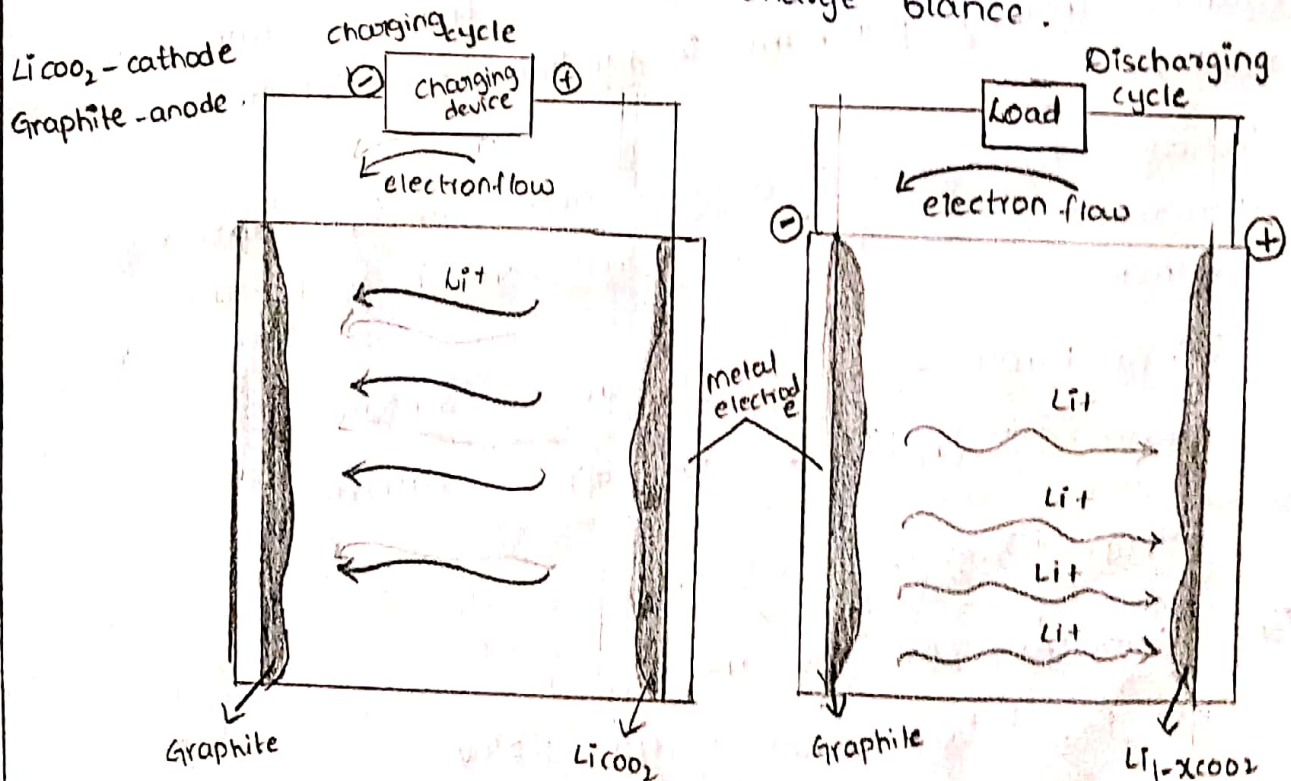 blance.
charging cycle
LiCoO₂ - cathode
Graphite - anode.
⊖
Charging
device
⊕
electron flow
Li+
Graphite
LiCoO₂
metal
electrod
e
Discharging
cycle
Load
electron flow
⊖
⊕
Li+
Li+
Li+
Li+
Graphite
Li₁₋ₓCoO₂